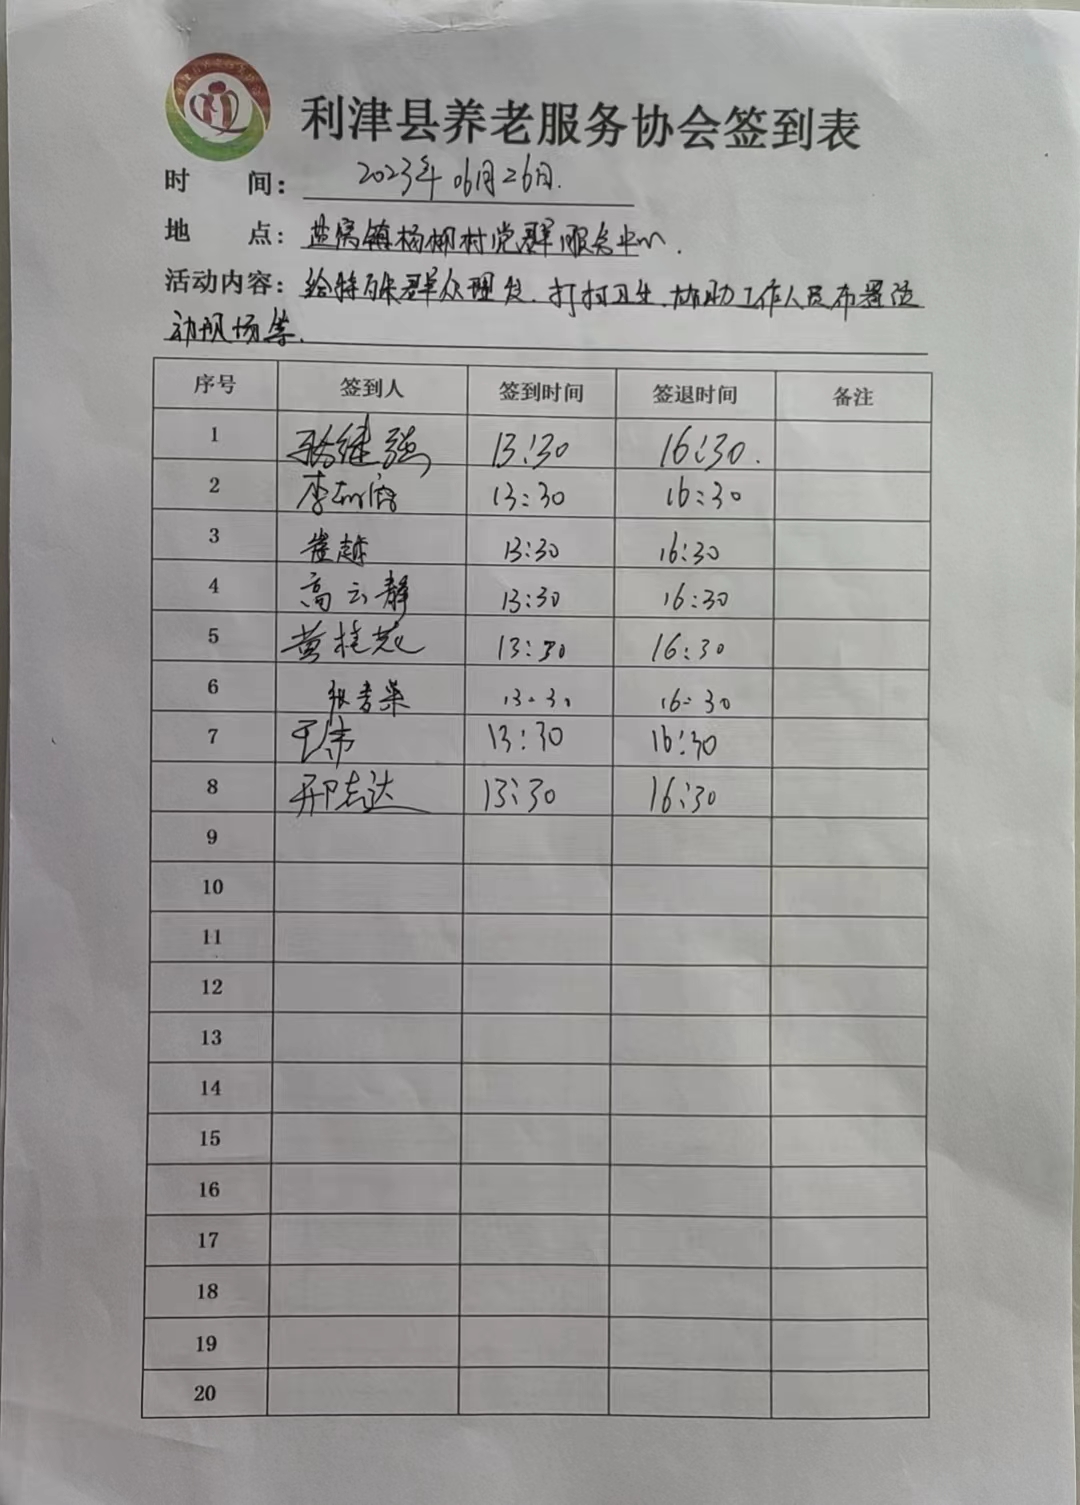 利津县养老服务协会签到表
时 间: 2023年06月26日.
地 点: 盐窝镇杨柳村党群服务中心.
活动内容: 给特殊群众理发.打扫卫生.协助工作人员布置活
动现场等.
序号 签到人 签到时间 签退时间 备注
1 张继强 13:30 16:30.
2 李 13:30 16:30
3 崔越 13:30 16:30
4 高云静 13:30 16:30
5 黄桂芝 13:30 16:30
6 张秀荣 13:30 16:30
7 王伟 13:30 16:30
8 邢志达 13:30 16:30
9
10
11
12
13
14
15
16
17
18
19
20